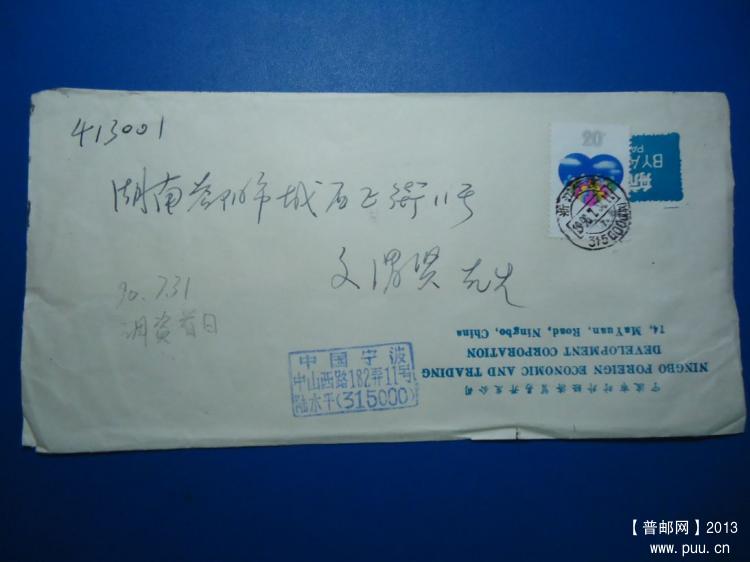 413001
湖南益阳市城石正街11号
文渭贤先生
90.731
调资首日
中国宁波
中山西路182弄11号
陆水平(315000)
20
航
BY A
PA
315000
宁波市对外经济贸易开发公司
NINGBO FOREIGN ECONOMIC AND TRADING
DEVELOPMENT CORPORATION
74, MaYuan, Road, Ningbo, China
【普邮网】2013
www.puu.cn